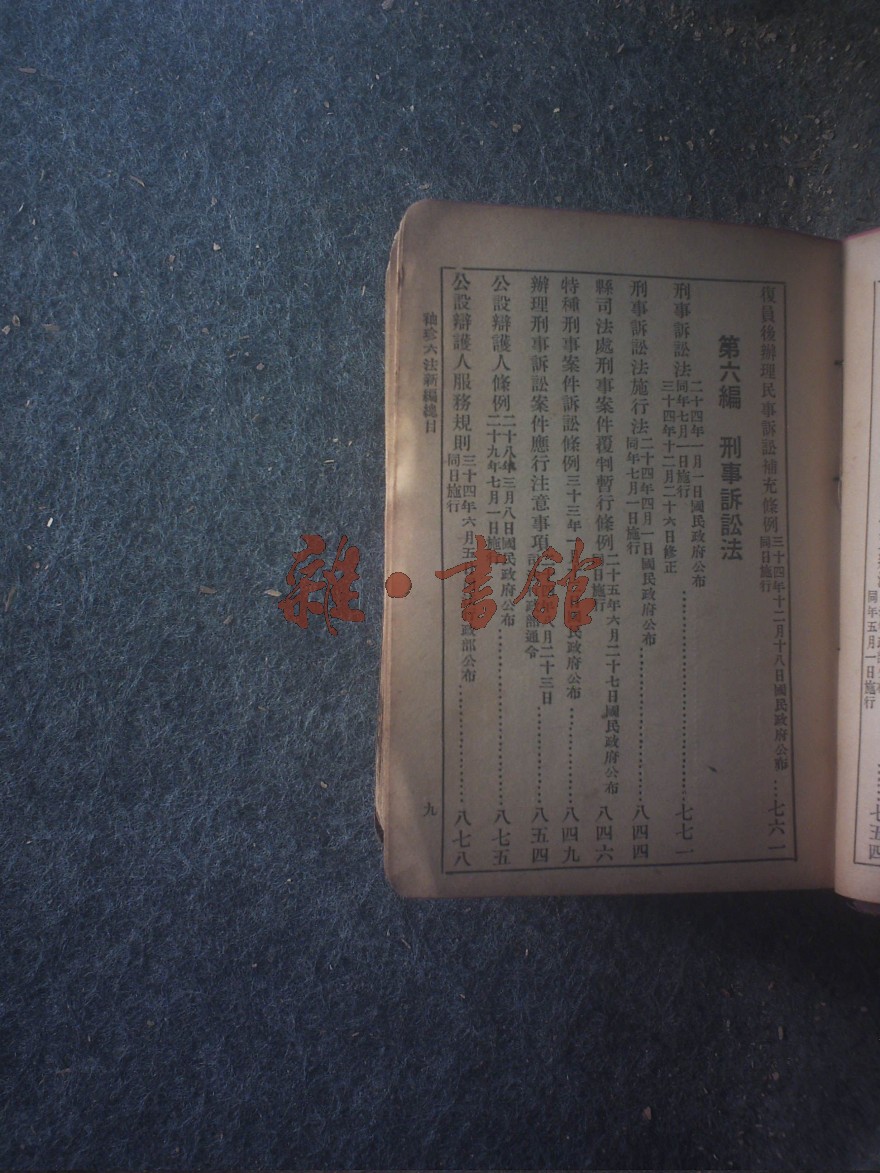 復員後辦理民事訴訟補充條例 三十四年十二月十八日國民政府公布 同日施行……七六一
第六編　刑事訴訟法
刑事訴訟法 二十四年一月一日國民政府公布 同年七月一日施行 三十四年十二月二十六日修正……七七一
刑事訴訟法施行法 二十四年四月一日國民政府公布 同年七月一日施行……八四四
縣司法處刑事案件覆判暫行條例 二十五年六月二十七日國民政府公布 日施行……八四六
特種刑事案件訴訟條例 三十三年一 國民政府公布……八四九
辦理刑事訴訟案件應行注意事項 八月二十三日 政部通令……八五四
公設辯護人條例 二十八年三月八日國民政府公布 二十九年七月一日施……八七五
公設辯護人服務規則 三十四年六月五 政部公布 同日施行……八七八
袖珍六法新編總目
九
雜·書館
同年五月一日施行
七五四